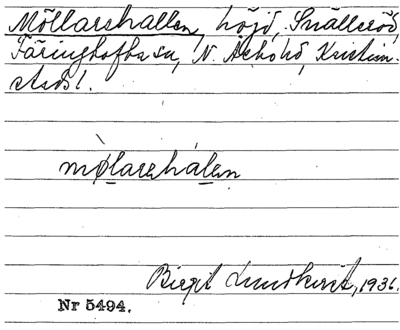 Möllarehallen, höjd, Snälleröd,
Färingtofta sn, N. Åsbo hd, Kristian-
stads l.
mølarehalen
Birgit Lundkvist, 1936.
Nr 5494.